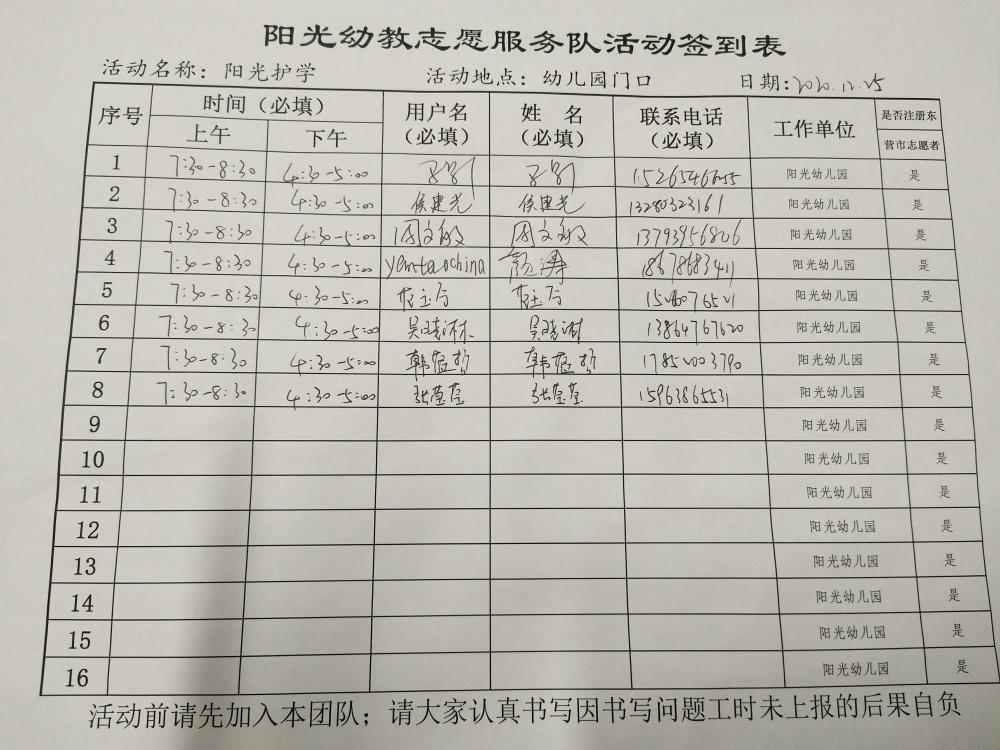 阳光幼教志愿服务队活动签到表
活动名称：阳光护学 活动地点：幼儿园门口 日期：2020.12.25
序号 时间（必填） 用户名（必填） 姓 名（必填） 联系电话（必填） 工作单位 是否注册东营市志愿者
上午 下午
1 7:30-8:30 4:30-5:00 阳光幼儿园 是
2 7:30-8:30 4:30-5:00 侯建光 侯建光 13280323161 阳光幼儿园 是
3 7:30-8:30 4:30-5:00 周文敏 周文敏 13793956806 阳光幼儿园 是
4 7:30-8:30 4:30-5:00 yentaochina 颜涛 18678683411 阳光幼儿园 是
5 7:30-8:30 4:30-5:00 阳光幼儿园 是
6 7:30-8:30 4:30-5:00 吴晓琳 吴晓琳 13864767620 阳光幼儿园 是
7 7:30-8:30 4:30-5:00 17850003790 阳光幼儿园 是
8 7:30-8:30 4:30-5:00 张莹莹 张莹莹 15963865531 阳光幼儿园 是
9 阳光幼儿园 是
10 阳光幼儿园 是
11 阳光幼儿园 是
12 阳光幼儿园 是
13 阳光幼儿园 是
14 阳光幼儿园 是
15 阳光幼儿园 是
16 阳光幼儿园 是
活动前请先加入本团队；请大家认真书写因书写问题工时未上报的后果自负